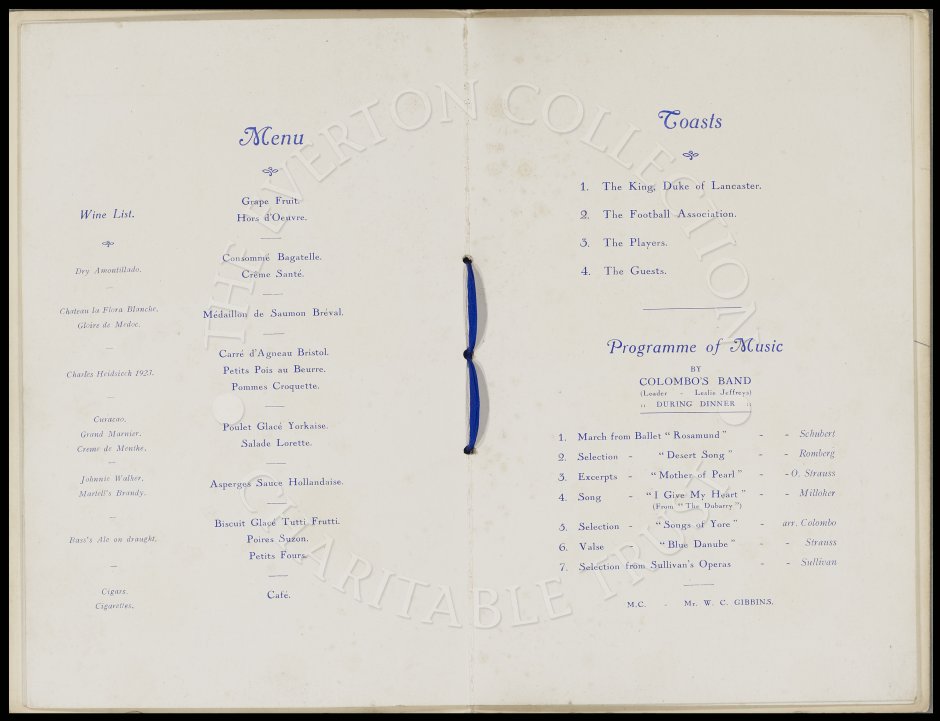 Menu
Wine List.
Dry Amontillado.
Chateau la Flora Blanche.
Gloire de Medoc.
Charles Heidsieck 1923.
Curacao.
Grand Marnier.
Creme de Menthe.
Johnnie Walker.
Martell's Brandy.
Bass's Ale on draught.
Cigars.
Cigarettes.
Grape Fruit.
Hors d'Oeuvre.
Consommé Bagatelle.
Crême Santé.
Médaillon de Saumon Bréval.
Carré d'Agneau Bristol.
Petits Pois au Beurre.
Pommes Croquette.
Poulet Glacé Yorkaise.
Salade Lorette.
Asperges Sauce Hollandaise.
Biscuit Glacé Tutti Frutti.
Poires Suzon.
Petits Fours.
Café.
Toasts
1. The King, Duke of Lancaster.
2. The Football Association.
3. The Players.
4. The Guests.
Programme of Music
BY
COLOMBO'S BAND
(Leader - Leslie Jeffreys)
:: DURING DINNER ::
1. March from Ballet "Rosamund" - - Schubert
2. Selection - "Desert Song" - - Romberg
3. Excerpts - "Mother of Pearl" - - O. Strauss
4. Song - "I Give My Heart" - - Milloker
(From "The Dubarry")
5. Selection - "Songs of Yore" - arr. Colombo
6. Valse "Blue Danube" - - Strauss
7. Selection from Sullivan's Operas - - Sullivan
M.C. - Mr. W. C. GIBBINS.
THE EVERTON COLLECTION
CHARITABLE TRUST